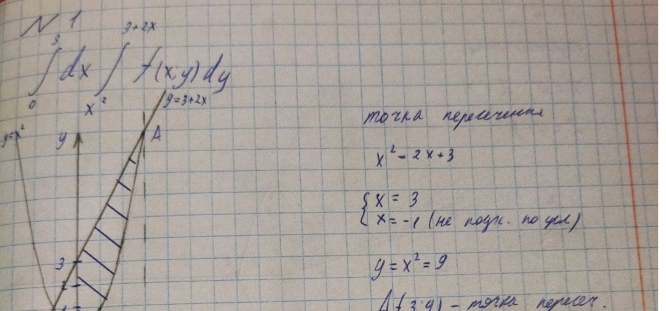 N 1
∫₀³ dx ∫_{x²}^{3+2x} f(x,y)dy
y=3+2x
y=x²
y
A
3
2
1
точка пересечения
x² = 2x+3
{x = 3
x = -1 (не подх. по усл)
y = x² = 9
A(3;9) - точка пересеч.